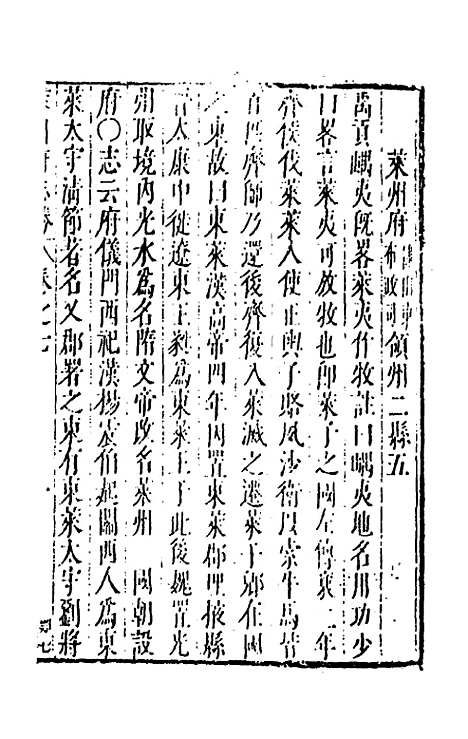 萊州府 布政司 領州二縣五
禹貢嵎夷旣畧萊夷作牧註曰嵎夷地名用功少
曰畧言萊夷可放牧也卽萊子之國左傳襄二年
齊侯伐萊萊人使正輿子賂夙沙衛以索牛馬皆
百匹齊師乃還後齊復入萊滅之遷萊子郳在國
之東故曰東萊漢高帝四年因置東萊郡理掖縣
晉太康中徙遼東王蕤爲東萊王于此後魏置光
州取境內光水爲名隋文帝改名萊州 國朝設
府〇志云府儀門西祀漢楊震伯起關西人爲東
萊太守淸節著名又郡署之東有東萊太守劉將